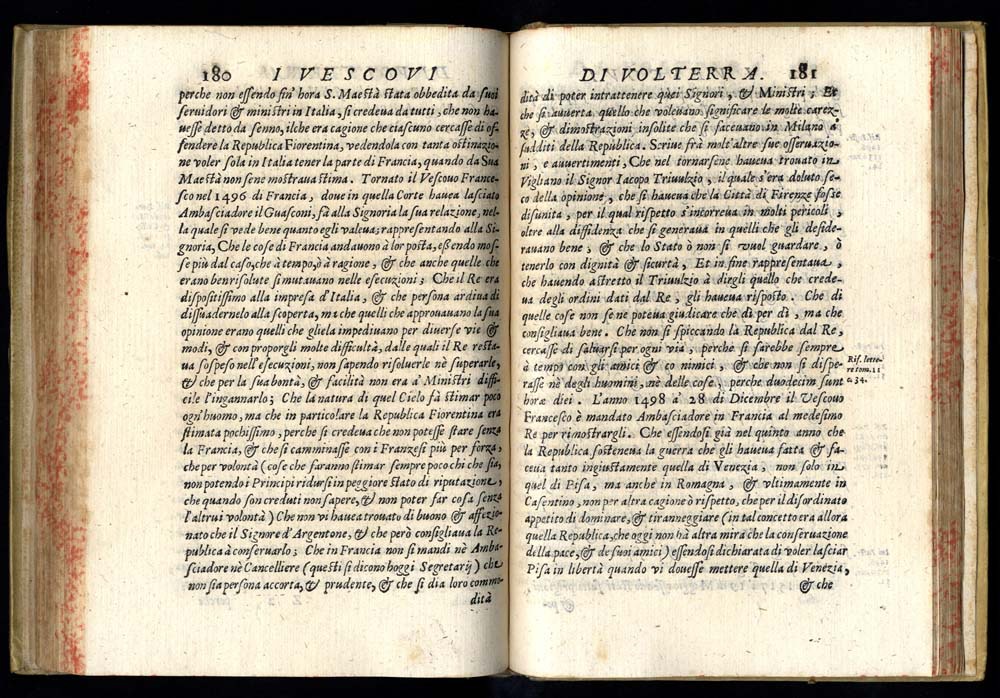 180 I VESCOVI
perche non essendo fin' hora S. Maestà stata obbedita da suoi
servidori & ministri in Italia, si credeva da tutti, che non ha-
vesse detto da senno, ilche era cagione che ciascuno cercasse di of-
fendere la Republica Fiorentina, vedendola con tanta ostinazio-
ne voler sola in Italia tener la parte di Francia, quando da Sua
Maestà non se ne mostrava stima. Tornato il Vescovo France-
sco nel 1496 di Francia, dove in quella Corte havea lasciato
Ambasciadore il Guasconi, fà alla Signoria la sua relazione, nel-
la quale si vede bene quanto egli valeva; rappresentando alla Si-
gnoria, Che le cose di Francia andavono à lor posta, eßendo mos-
se più dal caso, che à tempo, ò à ragione, & che anche quelle che
erano ben risolute si mutavano nelle esecuzioni; Che il Re era
dispostissimo alla impresa d'Italia, & che persona ardiva di
dissuadernelo alla scoperta, ma che quelli che approvavano la sua
opinione erano quelli che gliela impedivano per diverse vie &
modi, & con proporgli molte difficultà, dalle quali il Re resta-
va sospeso nell'esecuzioni, non sapendo risolverle nè superarle,
& che per la sua bontà, & facilità non era a' Ministri diffi-
cile l'ingannarlo; Che la natura di quel Cielo fà stimar poco
ogn'huomo, ma che in particolare la Republica Fiorentina era
stimata pochissimo, perche si credeva che non potesse stare senza
la Francia, & che si camminasse con i Franzesi più per forza,
che per volontà (cose che faranno stimar sempre poco chi che sia,
non potendo i Principi ridursi in peggiore stato di riputazione,
che quando son creduti non sapere, & non poter far cosa senza
l'altrui volontà) Che non vi havea trovato di buono & affezio-
nato che il Signore d'Argentone, & che però consigliava la Re-
publica à conservarlo; Che in Francia non si mandi nè Amba-
sciadore nè Cancelliere (questi si dicono hoggi Segretarij) che
non sia persona accorta, & prudente, & che si dia loro commo-
dità
DI VOLTERRA. 181
dità di poter intrattenere quei Signori, & Ministri; Et
che si avverta quello che volevano significare le molte carez-
ze, & dimostrazioni insolite che si facevano in Milano a'
sudditi della Republica. Scrive frà molt'altre sue osservazio-
ni, e avvertimenti, Che nel tornarsene haveva trovato in
Vigliano il Signor Iacopo Trivulzio, il quale s'era doluto se-
co della opinione, che si haveva che la Città di Firenze fosse
disunita, per il qual rispetto s'incorreva in molti pericoli,
oltre alla diffidenza che si generava in quelli che gli deside-
ravano bene; & che lo Stato ò non si vuol guardare, ò
tenerlo con dignità & sicurtà, Et in fine rappresentava,
che havendo astretto il Trivulzio à dirgli quello che crede-
va degli ordini dati dal Re, gli haveva risposto. Che di
quelle cose non se ne poteva giudicare che dì per dì, ma che
consigliava bene. Che non si spiccando la Republica dal Re,
cercasse di salvarsi per ogni via, perche si sarebbe sempre
à tempo con gli amici & co nimici, & che non si dispe-
rasse nè degli huomini, nè delle cose, perche duodecim sunt
horæ diei. L'anno 1498 a' 28 di Dicembre il Vescovo
Francesco è mandato Ambasciadore in Francia al medesimo
Re per rimostrargli. Che essendosi già nel quinto anno che
la Republica sosteneva la guerra che gli haveva fatta & fa-
ceva tanto ingiustamente quella di Venezia, non solo in
quel di Pisa, ma anche in Romagna, & vltimamente in
Casentino, non per altra cagione ò rispetto, che per il disordinato
appetito di dominare, & tiranneggiare (in tal concetto era allora
quella Republica, che oggi non hà altra mira che la conservazione
della pace, & de suoi amici) essendosi dichiarata di voler lasciar
Pisa in libertà quando vi dovesse mettere quella di Venezia,
& che
Rif. lette-
re tom. 11
a 34.